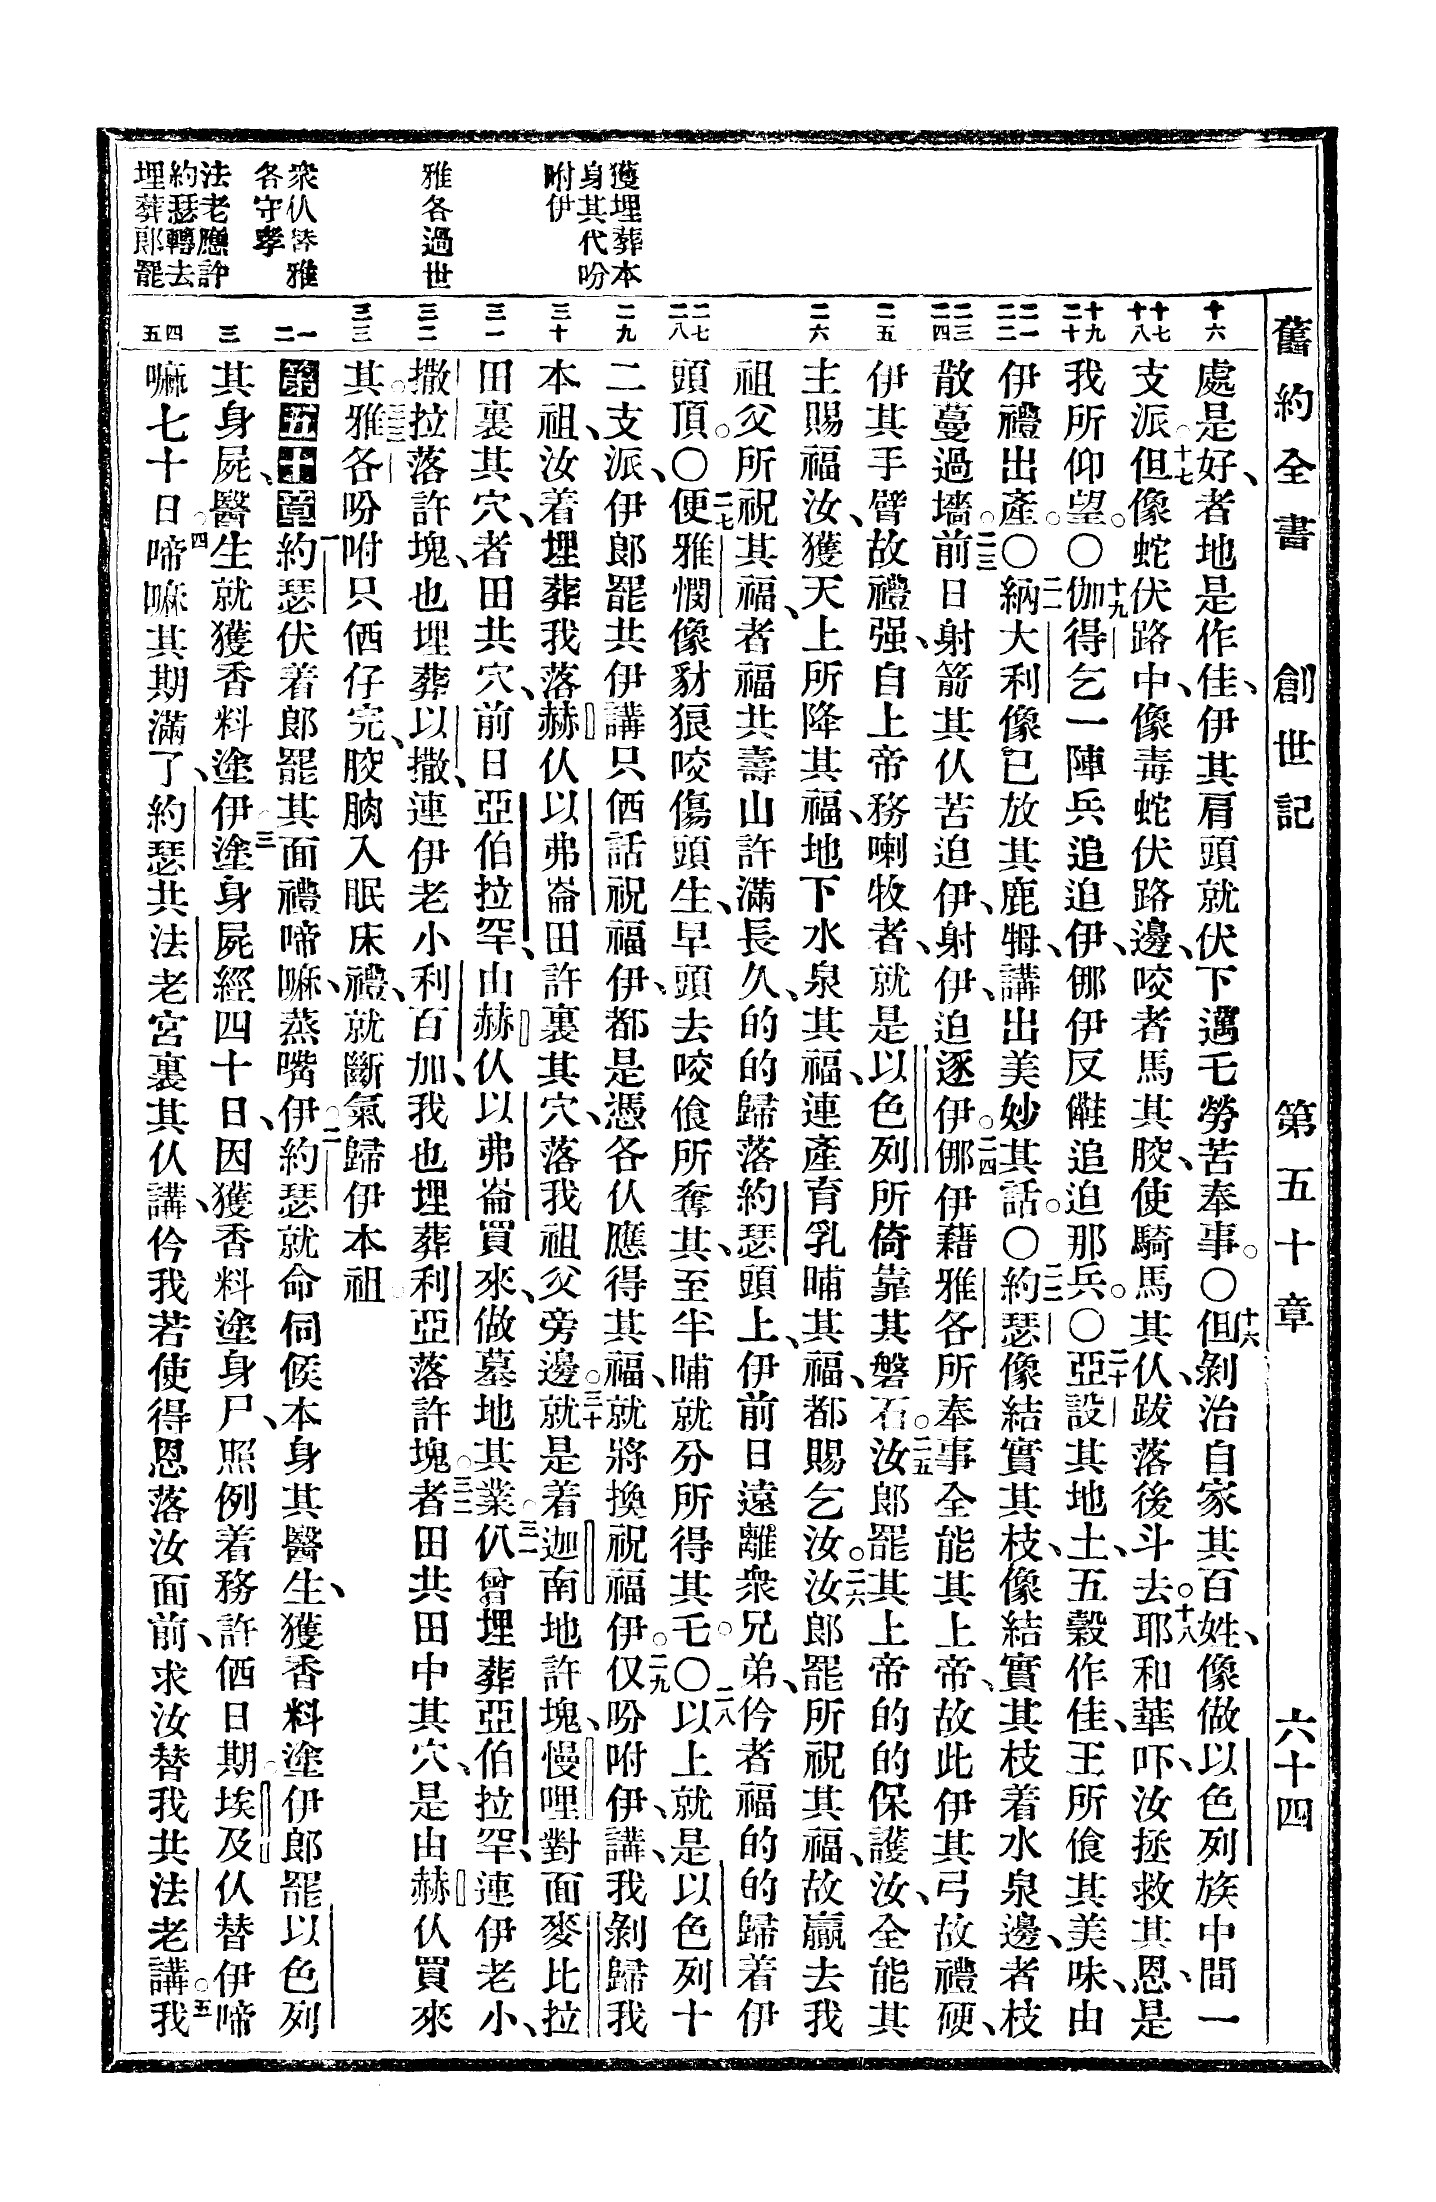 舊約全書 創世記 第五十章 六十四
獲埋葬本
身其代吩
咐伊
雅各過世
衆仈替雅
各守孝
法老應許
約瑟轉去
埋葬郎罷
十六
十七 十八
十九 二十
二一 二二
二三 二四
二五
二六
二七 二八
二九
三十
三一
三二
三三
一 二
三
四 五
處是好、者地是作佳、伊其肩頭就伏下遇乇勞苦奉事。〇十六但剝治自家其百姓、像做以色列族中間一
支派。十七但像蛇伏路中、像毒蛇伏路邊、咬者馬其骹、使騎馬其仈、跋落後斗去。十八耶和華吓、汝拯救其恩、是
我所仰望。〇十九伽得乞一陣兵追迫伊、㑚伊反𠆧追迫那兵。〇二十亞設其地土、五穀作佳、王所飡其美味、由
伊禮出產。〇二一納大利像已放其鹿牳、講出美妙其話。〇二二約瑟像結實其枝、像結實其枝着水泉邊、者枝
散蔓過墻。二三前日射箭其仈苦迫伊、射伊、迫逐伊。二四㑚伊藉雅各所奉事全能其上帝、故此伊其弓故禮硬、
伊其手臂故禮强、自上帝務喇牧者、就是以色列所倚靠其磐石。二五汝郎罷其上帝的的保護汝、全能其
主賜福汝、獲天上所降其福、地下水泉其福、連產育乳哺其福、都賜乞汝。二六汝郎罷所祝其福、故贏去我
祖父所祝其福、者福共壽山許滿長久、的的歸落約瑟頭上、伊前日遠離衆兄弟、仱者福的的歸着伊
頭頂。〇二七便雅憫像豺狼咬傷頭生、早頭去咬飡所奪其、至半晡就分所得其乇。〇二八以上就是以色列十
二支派、伊郎罷共伊講只𠱃話祝福伊、都是憑各仈應得其福、就將換祝福伊。二九仅吩咐伊、講、我剝歸我
本祖、汝着埋葬我落赫仈以弗崙田許裏其穴、落我祖父旁邊。三十就是着迦南地許塊、慢哩對面麥比拉
田裏其穴、者田共穴、前日亞伯拉罕、由赫仈以弗崙買來、做墓地其業。三一仈曾埋葬亞伯拉罕、連伊老小、
撒拉落許塊、也埋葬以撒、連伊老小利百加、我也埋葬利亞落許塊。三二者田共田中其穴、是由赫仈買來
其。三三雅各吩咐只𠱃仔完、骹胸入眠床禮、就斷氣歸伊本祖。
第五十章 一約瑟伏着郎罷其面禮啼嘛、蒸嘴伊。二約瑟就命伺候本身其醫生、獲香料塗伊郎罷以色列
其身屍、醫生就獲香料塗伊。三塗身屍經四十日、因獲香料塗身尸、照例着務許𠱃日期。埃及仈替伊啼
嘛七十日。四啼嘛其期滿了、約瑟共法老宮裏其仈講、仱我若使得恩落汝面前、求汝替我共法老講。五我